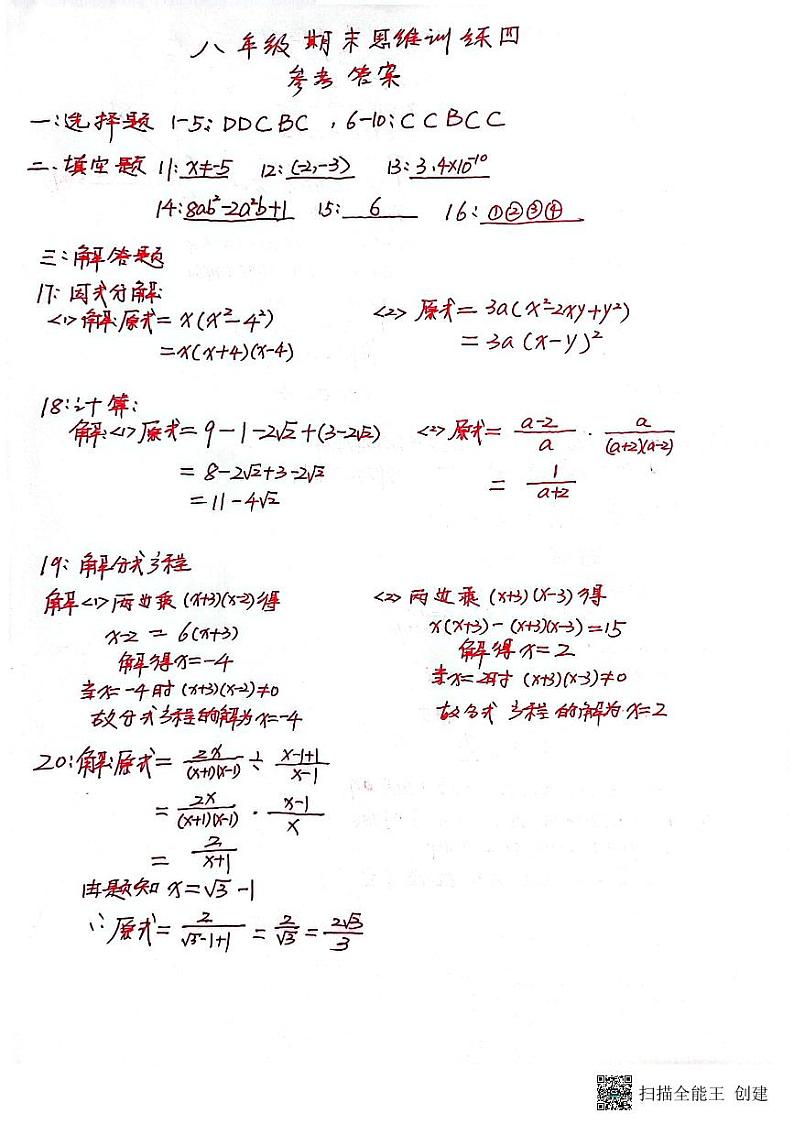 八年级期末思维训练四
参考答案
一:选择题 1-5: DDCBC , 6-10: CCBCC
二、填空题 11: x≠-5 12: (-2,-3) 13: 3.4×10⁻¹⁰
14: 8ab²-2a²b+1 15: 6 16: ①②③④
三:解答题
17: 因式分解:
<1>解:原式= x(x²-4²) <2> 原式= 3a(x²-2xy+y²)
=x(x+4)(x-4) = 3a(x-y)²
18:计算:
解:<1>原式= 9-1-2√2+(3-2√2) <2>原式= (a-2)/a · a/((a+2)(a-2))
= 8-2√2+3-2√2 = 1/(a+2)
=11-4√2
19: 解分式方程
解<1>两边乘(x+3)(x-2)得 <2> 两边乘(x+3)(x-3)得
x-2 = 6(x+3) x(x+3)-(x+3)(x-3)=15
解得x=-4 解得x=2
当x=-4时(x+3)(x-2)≠0 当x=2时(x+3)(x-3)≠0
故分式方程的解为x=-4 故分式方程的解为x=2
20:解:原式= 2x/((x+1)(x-1)) ÷ (x-1+1)/(x-1)
= 2x/((x+1)(x-1)) · (x-1)/x
= 2/(x+1)
由题知x=√3-1
∴原式= 2/(√3-1+1) = 2/√3 = 2√3/3
扫描全能王 创建